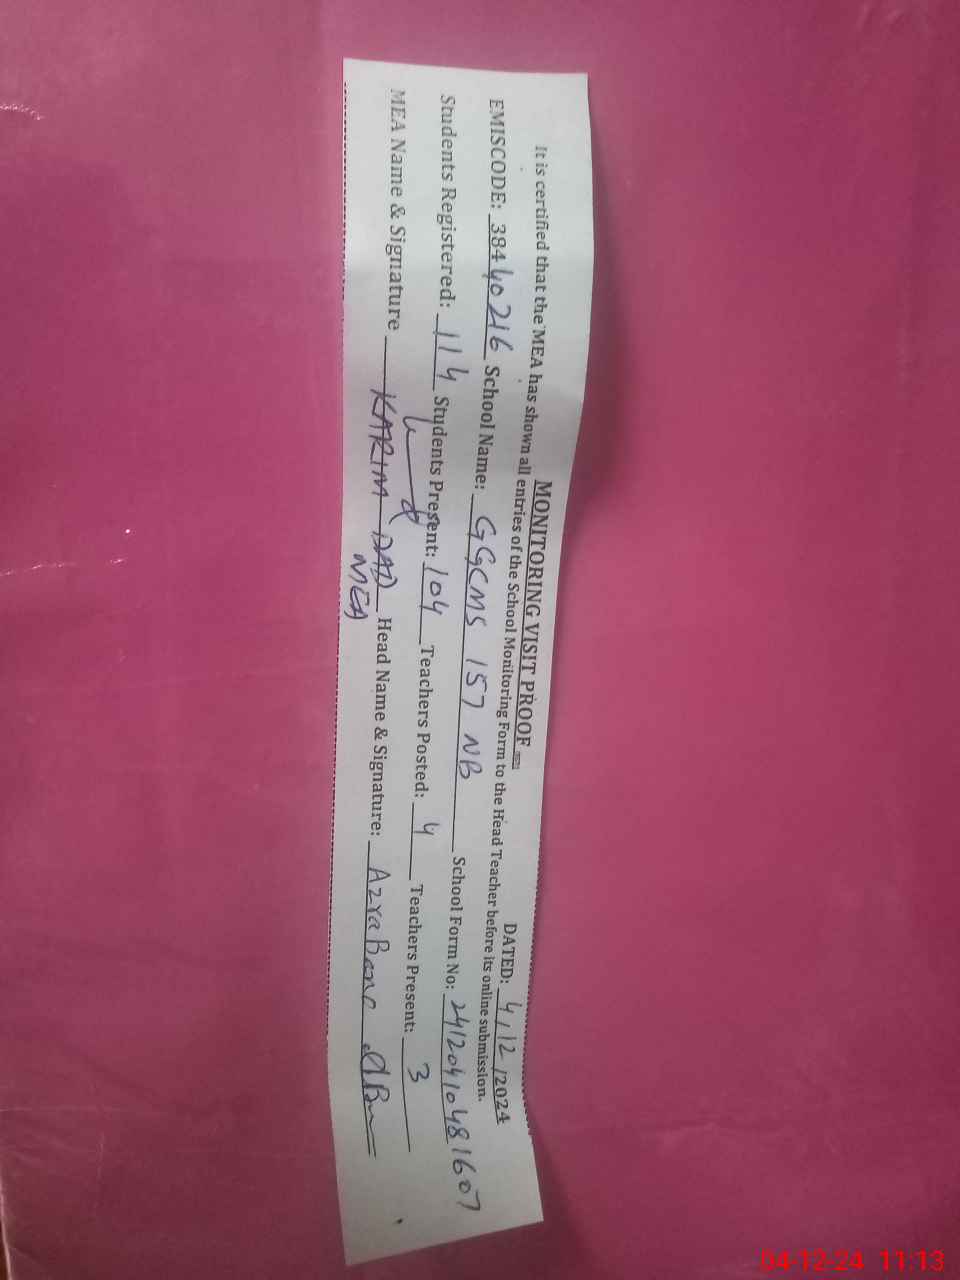 MONITORING VISIT PROOF
DATED: 4/12/2024
It is certified that the MEA has shown all entries of the School Monitoring Form to the Head Teacher before its online submission.
EMISCODE: 38440216 School Name: GGCMS 157 NB School Form No: 2412041048 1607
Students Registered: 114 Students Present: 104 Teachers Posted: 4 Teachers Present: 3
MEA Name & Signature KARIM DAD Head Name & Signature: Azra Bano
MEA
04-12-24 11:13